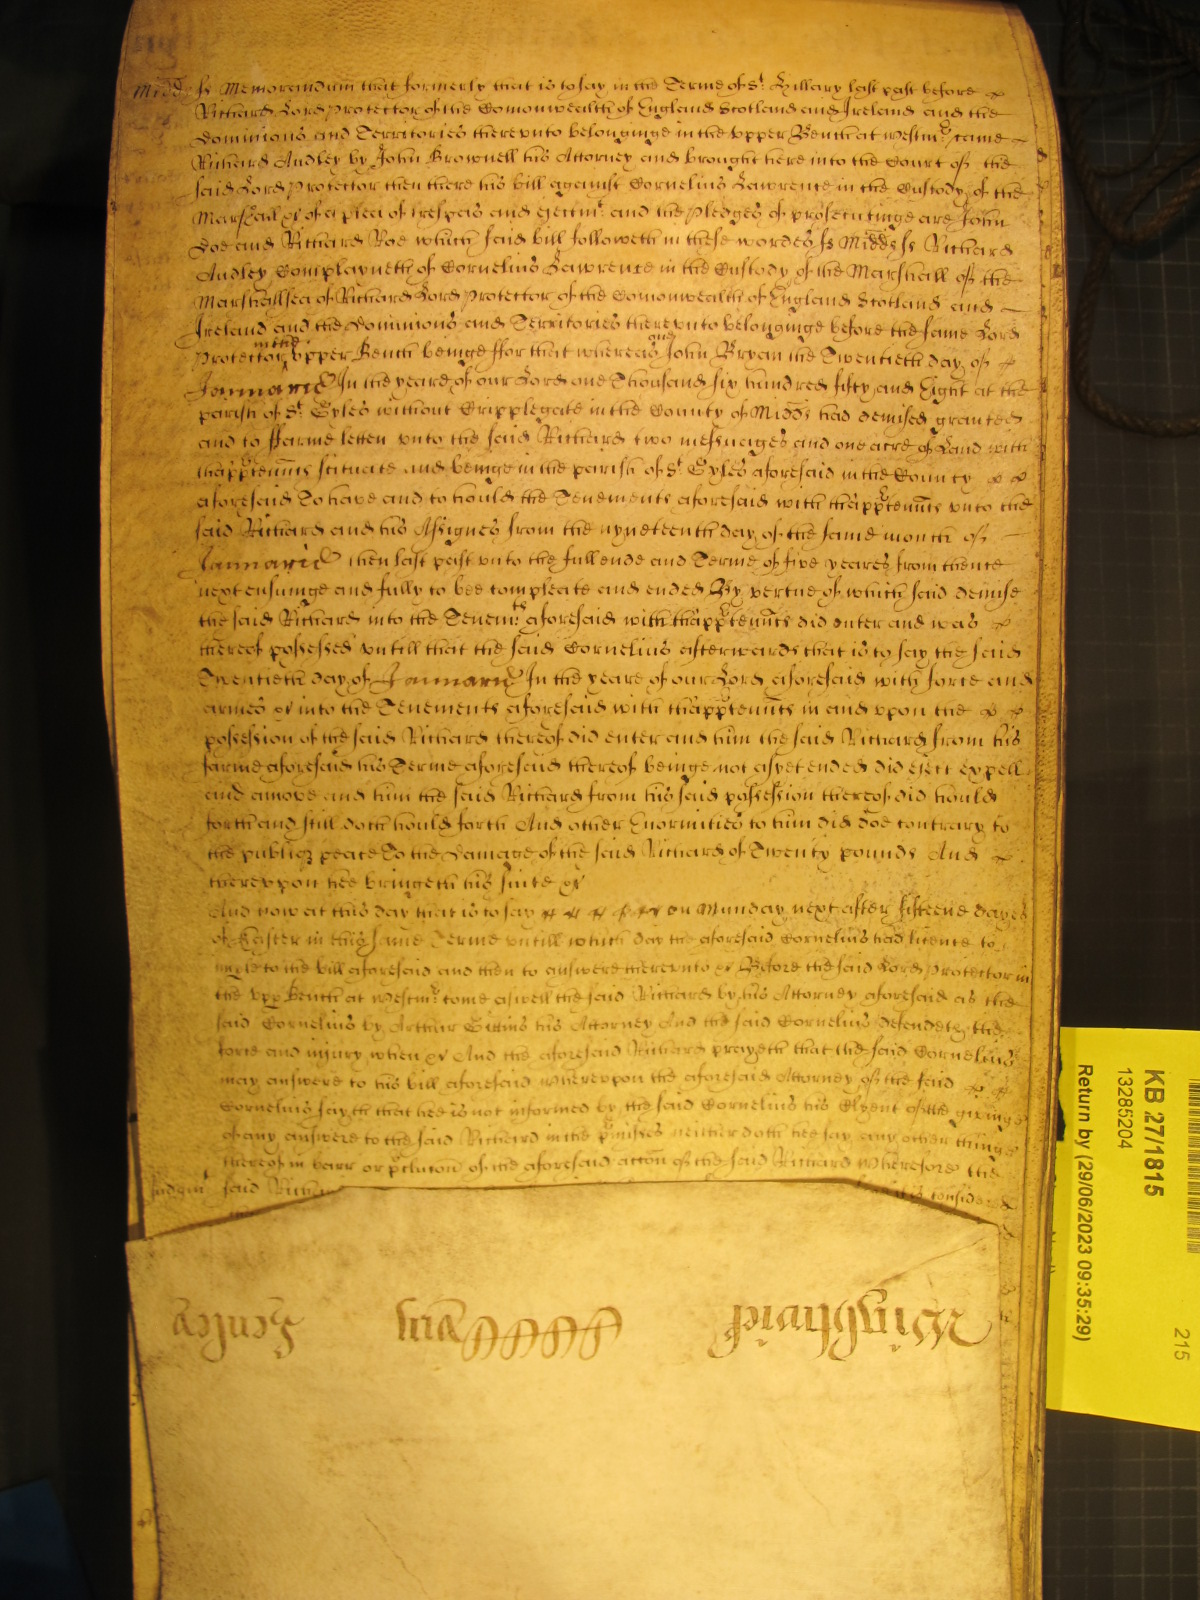 Midd ss Memorandum that formerly that is to say in the Terme of St. Hillary last past before
Richard Lord Protector of the Comonwealth of England Scotland and Ireland and the
Dominions and Territories therevnto belonginge in the vpper Bench at Westmr. came
Richard Audley by John Brownell his Attorney and brought here into the Court of the
said Lord Protector then there his bill against Cornelius Lawrence in the Custody of the
Marshall &c of a plea of trespas and eiectmt. and the pledges of prosecutinge are John
Doe and Richard Roe which said bill followeth in these wordes ss Midds ss Richard
Audley Complayneth of Cornelius Lawrence in the Custody of the Marshall of the
Marshallsea of Richard Lord Protector of the Comonwealth of England Scotland and
Ireland and the Dominions and Territories therevnto belonginge before the same Lord
Protector in the vpper Bench beinge ffor that whereas one John Bryan the Twentieth day of
Januarie In the yeare of our Lord one Thousand six hundred fifty and Eight at the
parish of St. Gyles without Cripplegate in the County of Midds had demised granted
and to ffarme letten vnto the said Richard two messuages and one acre of Land with
thapptenncs scituate and beinge in the parish of St. Gyles aforesaid in the County
aforesaid To have and to hould the Tenements aforesaid with thapptenncs vnto the
said Richard and his Assignes from the nyneteenth day of the same month of
Januarie then last past vnto the full ende and Terme of five yeares from thence
next ensuinge and fully to bee compleate and ended By vertue of which said demise
the said Richard into the Tenemts. aforesaid with thapptenncs did enter and was
thereof possessed vntill that the said Cornelius afterwards that is to say the said
Twentieth day of Januarie In the yeare of our Lord aforesaid with force and
armes &c into the Tenements aforesaid with thapptenncs in and vpon the
possession of the said Richard thereof did enter and him the said Richard from his
farme aforesaid his Terme aforesaid thereof beinge not as yet ended did eiect expell
and amove and him the said Richard from his said possession thereof did hould
forth and still doth hould forth And other Enormities to him did doe contrary to
the publiq peace To the damage of the said Richard of Twenty pounds And
therevpon hee bringeth his suite &c
And now at this day that is to say on Munday next after fifteene dayes
of Easter in this same Terme vntill which day the aforesaid Cornelius had licence to
imple to the bill aforesaid and then to answere therevnto &c Before the said Lord Protector in
the vpp Bench at Westmr. come aswell the said Richard by his Attorney aforesaid as the
said Cornelius by Arthur Gittins his Attorney And the said Cornelius defendeth the
force and iniury when &c And the aforesaid Richard prayeth that the said Cornelius
may answere to his bill aforesaid wherevpon the aforesaid Attorney of the said
Cornelius sayth that hee is not informed by the said Cornelius his Clyent of the givinge
of any answere to the said Richard in the pmisses neither doth hee say any other thinge
thereof in barr or pclucon of the aforesaid accon of the said Richard Wherefore the
Judgmt said Richard it is conside
Wightwick
Fenley
KB 27/1815
13285204
Return by (29/06/2023 09:35:29)
215